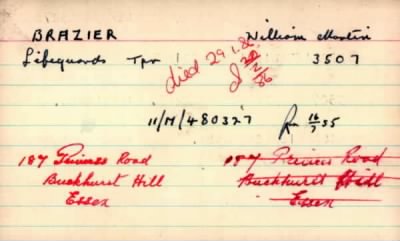 BRAZIER William Martin
Lifeguards Tpr 3507
died 29.1.86
20/2/86
11/M/480327 16/7 35
187 Princes Road
Buckhurst Hill
Essex
187 Princes Road
Buckhurst Hill
Essex